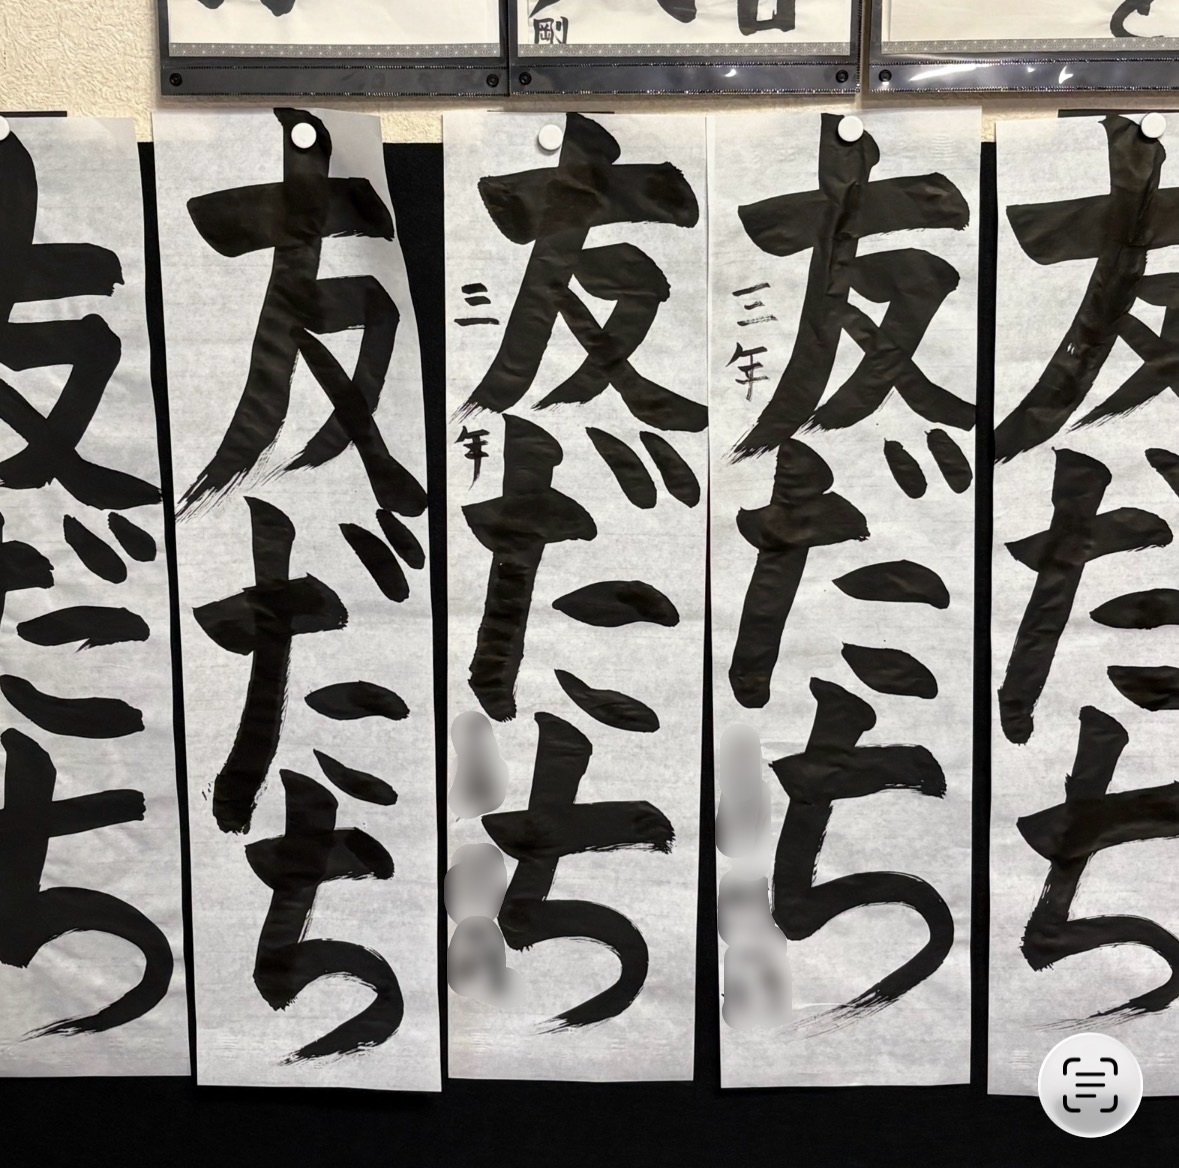 剛
友だち
友だち
三年
友だち
三年
友だち
友だち